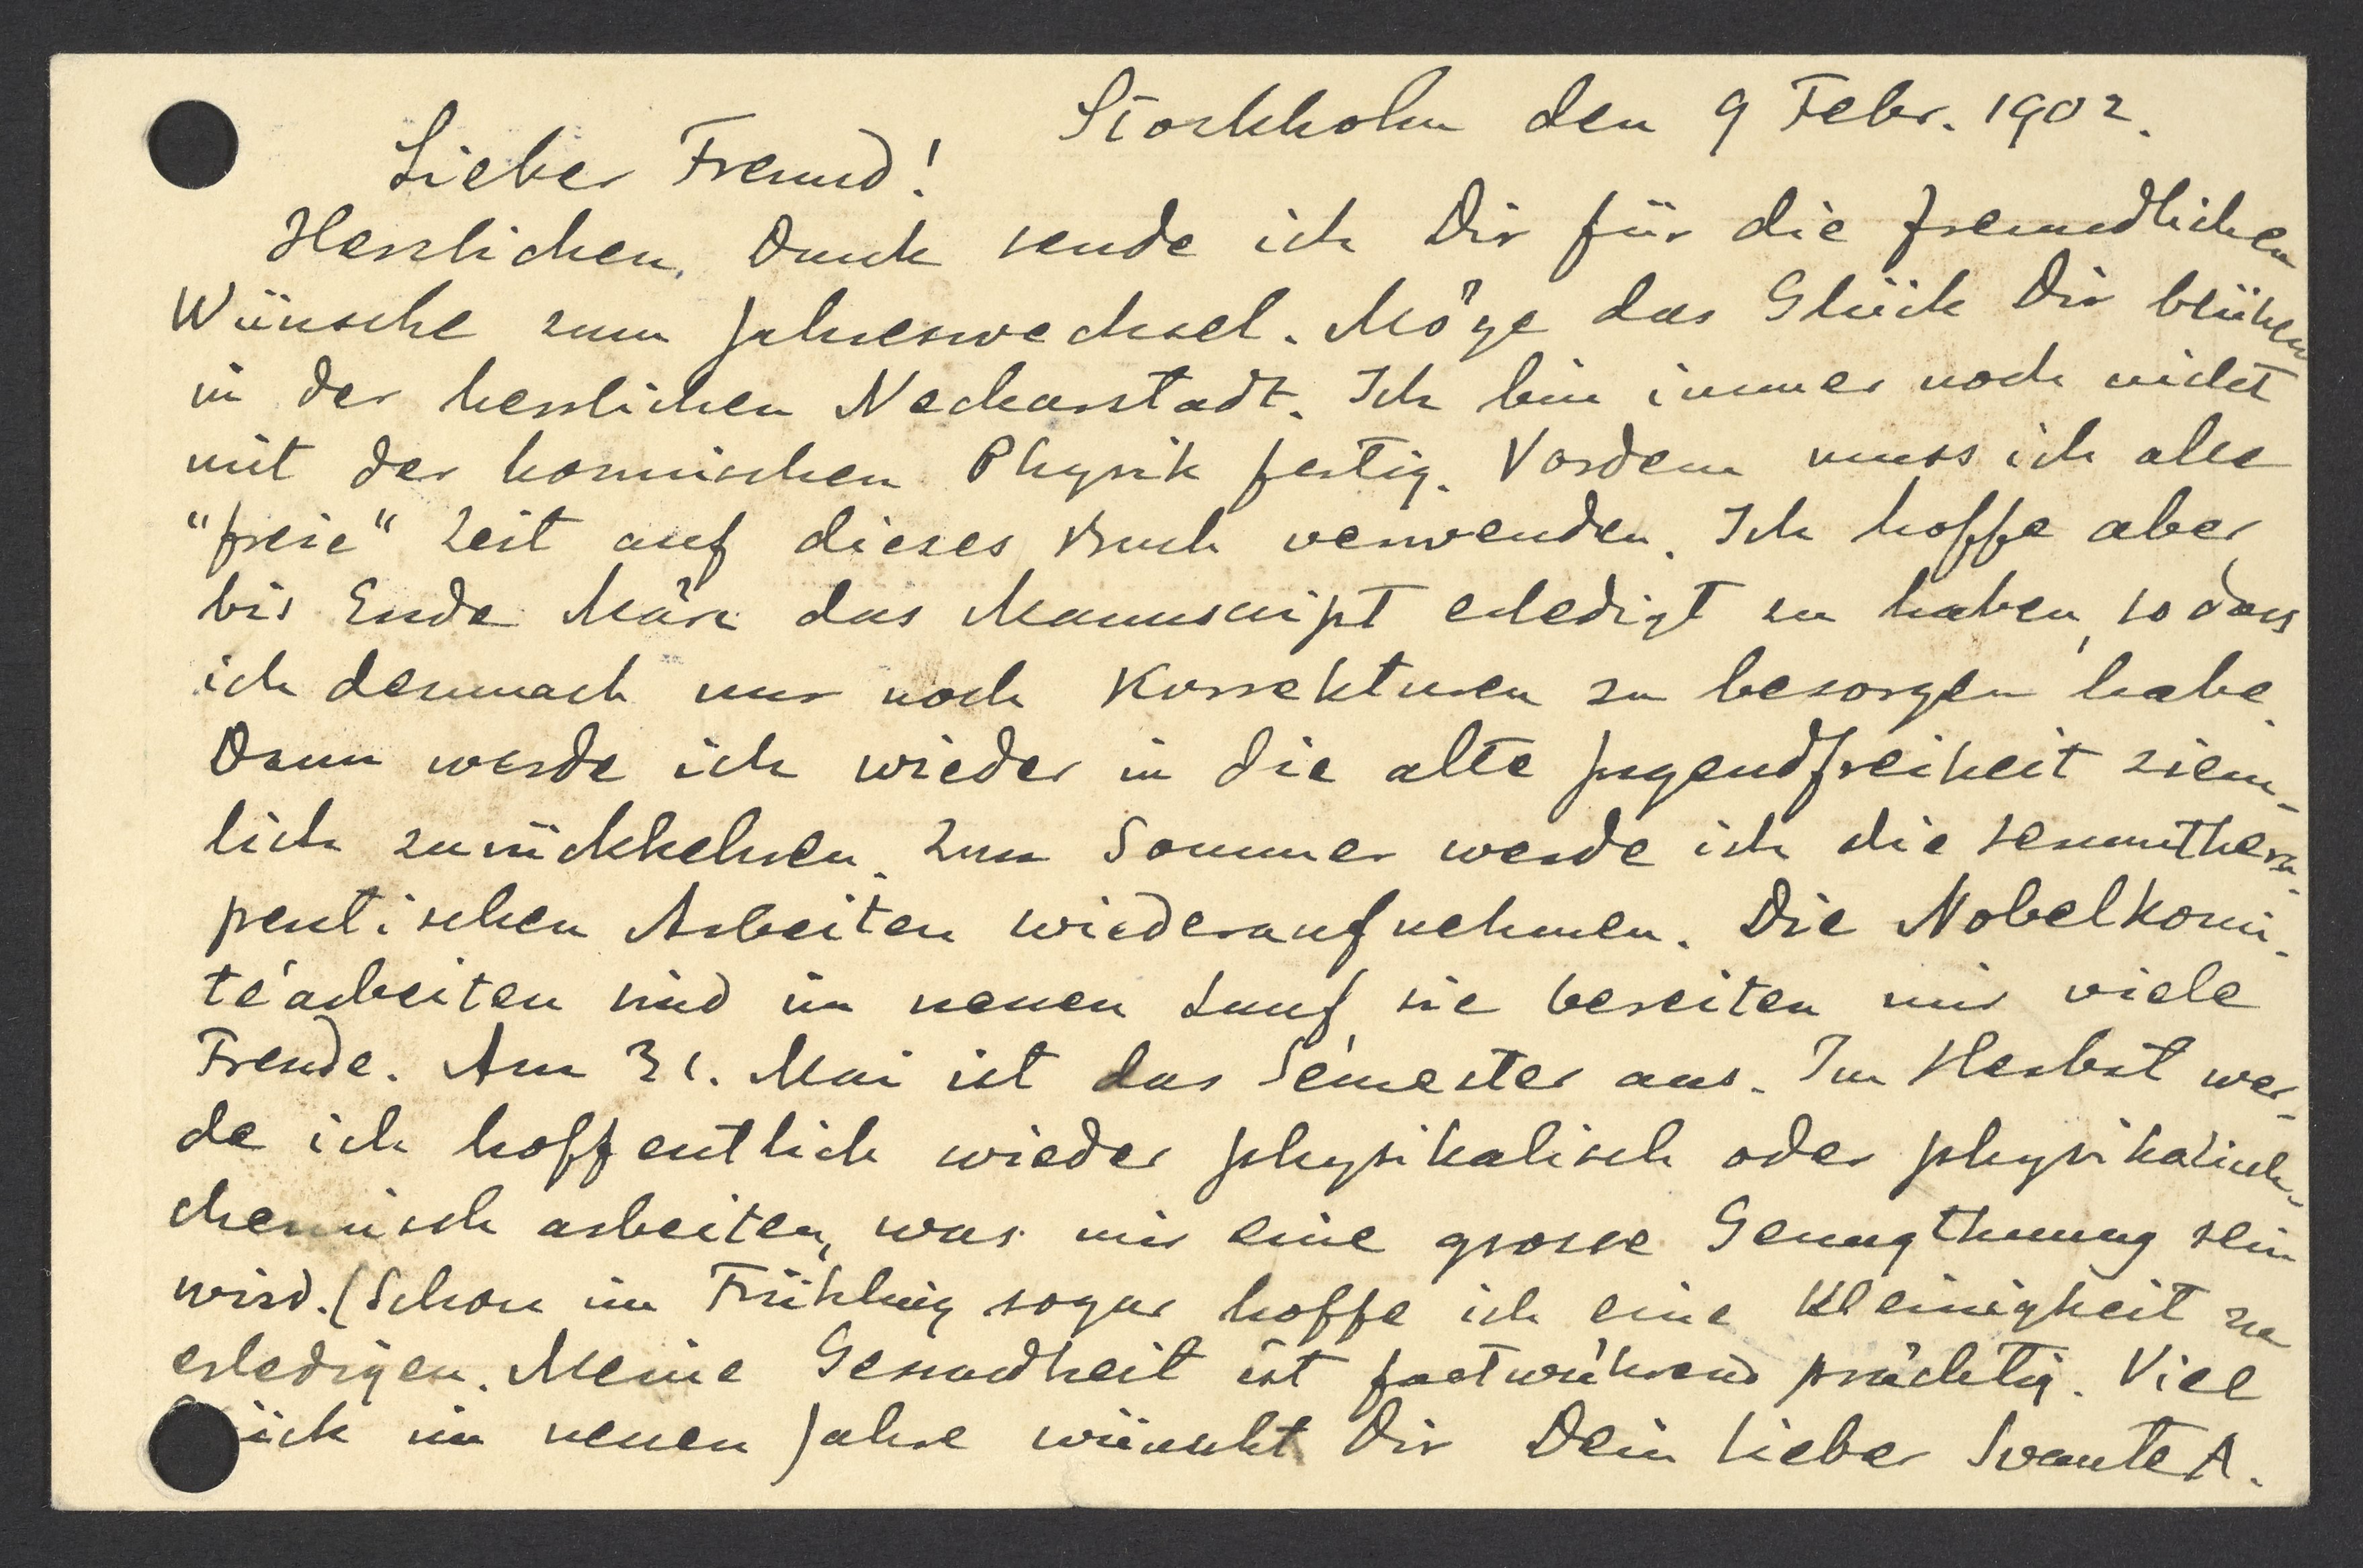 Stockholm den 9 Febr. 1902.
Lieber Freund!
Herzlichen Dank sende ich Dir für die freundlichen
Wünsche zum Jahreswechsel. Möge das Glück Dir blühen
in der herrlichen Neckarstadt. Ich bin immer noch nicht
mit der kosmischen Physik fertig. Vordem muss ich alle
"freie" Zeit auf dieses Buch verwenden. Ich hoffe aber
bis Ende März das Manuscript erledigt zu haben, so dass
ich demnach nur noch Korrekturen zu besorgen habe.
Dann werde ich wieder in die alte Jugendfreiheit ziem-
lich zurückkehren. Zum Sommer werde ich die serumthera-
peutischen Arbeiten wiederaufnehmen. Die Nobelkomi-
téarbeiten sind im neuen Lauf, sie bereiten mir viele
Freude. Am 31. Mai ist das Semester aus. Im Herbst wer-
de ich hoffentlich wieder physikalisch oder physikalisch-
chemisch arbeiten, was mir eine grosse Genugthuung sein
wird. (Schon im Frühling sogar hoffe ich eine Kleinigkeit zu
erledigen. Meine Gesundheit ist fortwährend prächtig. Viel
ück im neuen Jahre wünscht Dir Dein lieber Svante A.